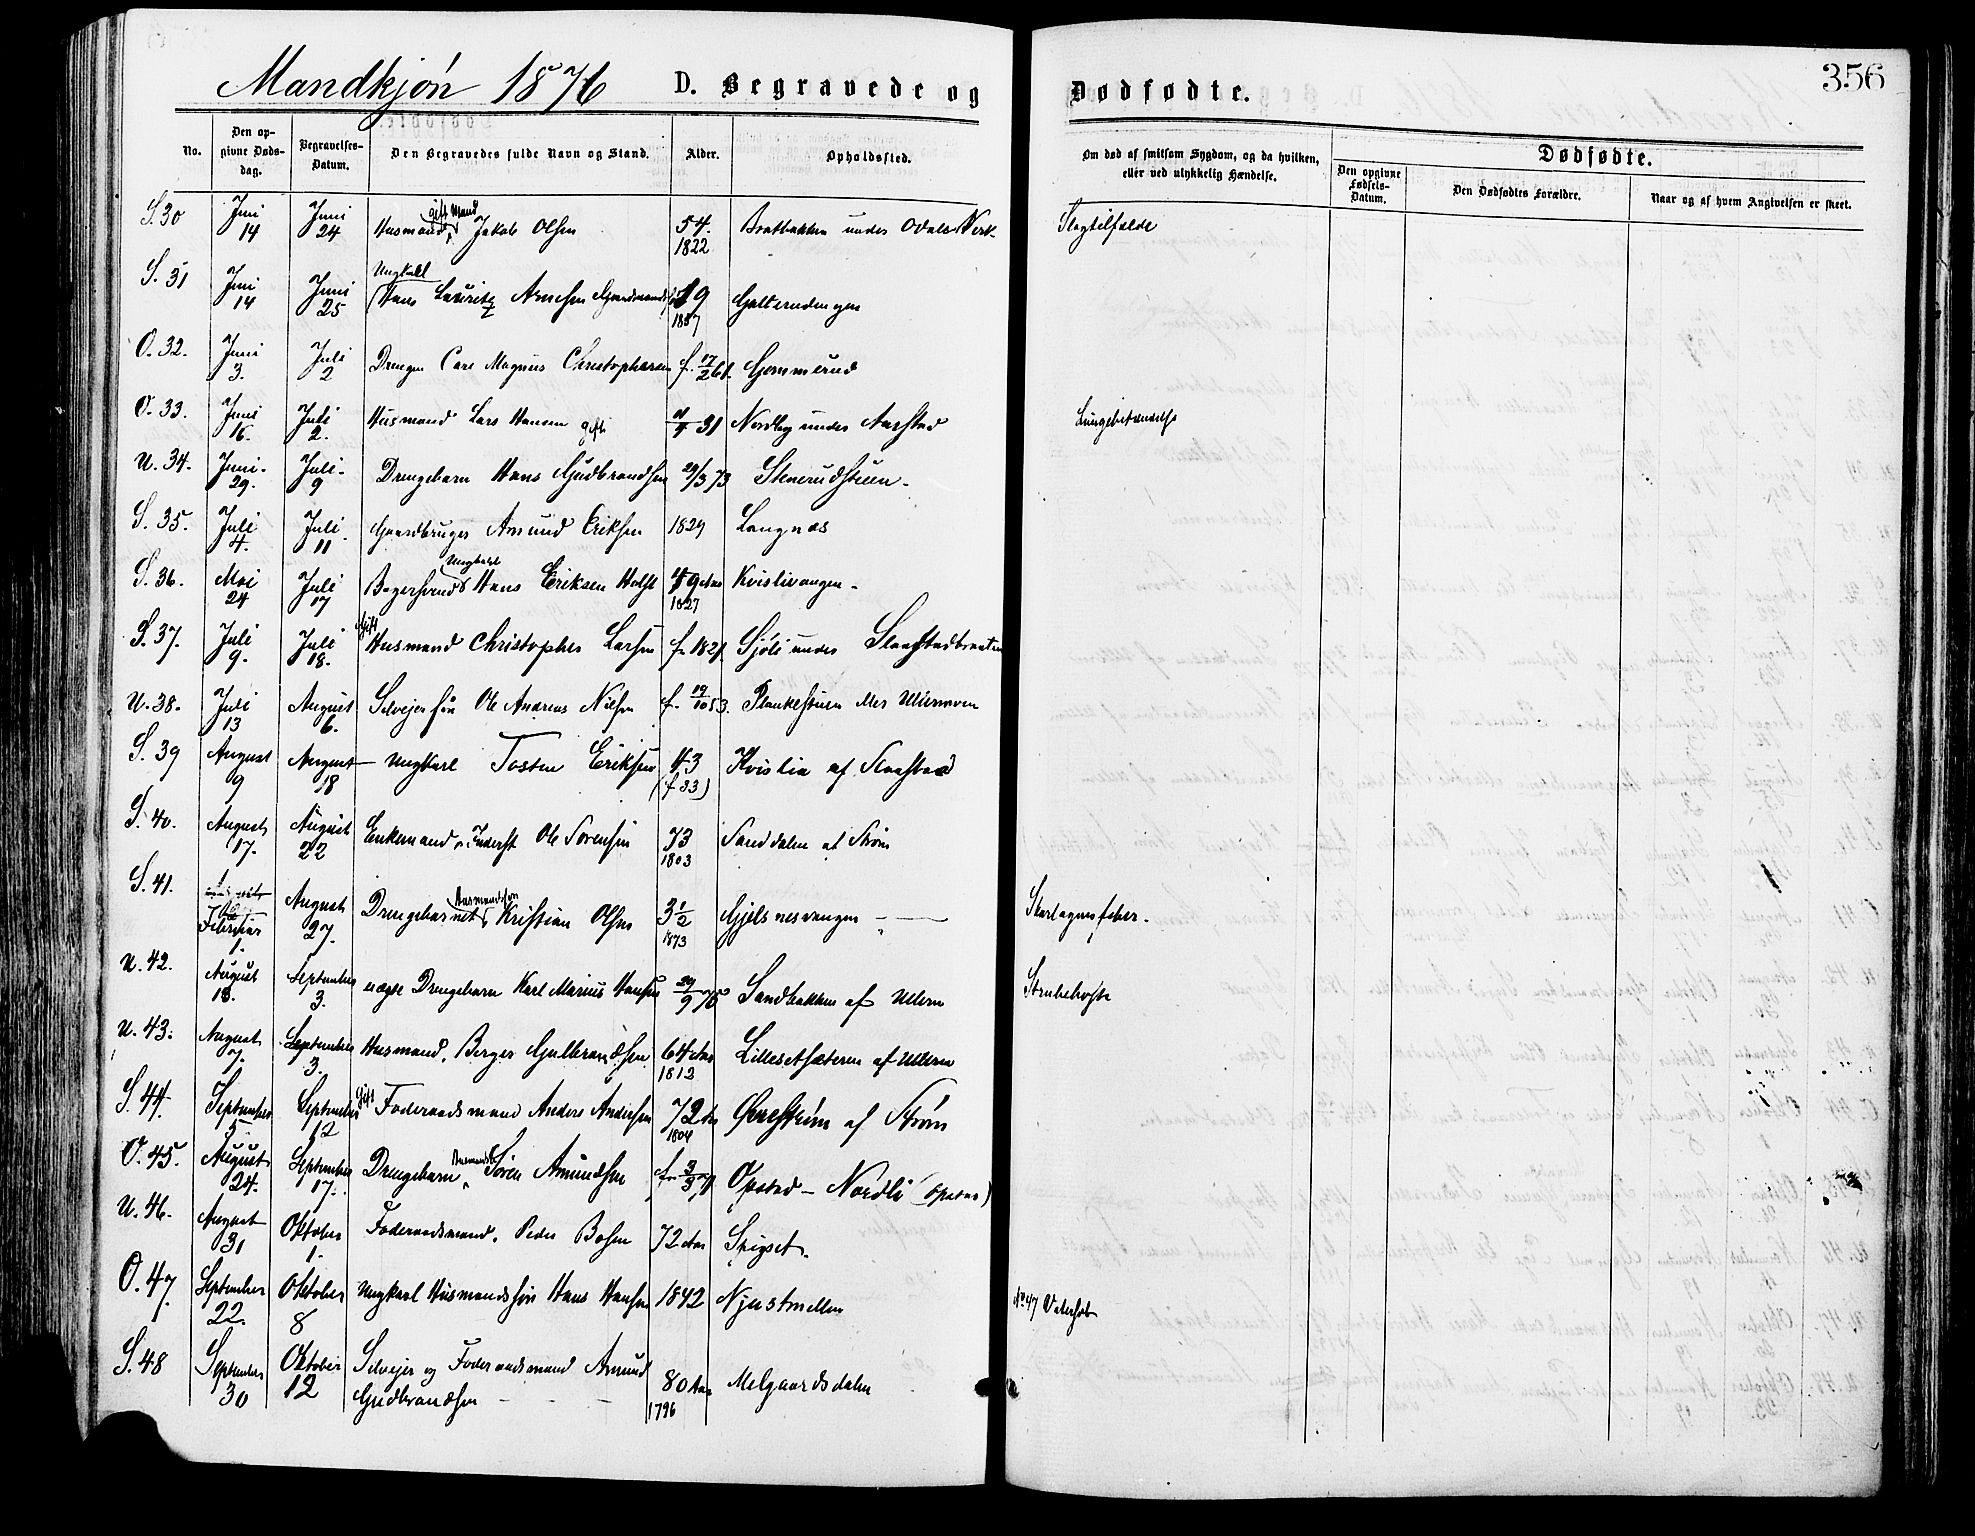 Mandkjøn 1876 D. Begravede og Dødfødte. 356
No. Den opgivne Dødsdag. Begravelses-Datum. Den Begravedes fulde Navn og Stand. Alder. Opholdssted. Om død af smitsom Sygdom, og da hvilken, eller ved ulykkelig Hændelse. Dødfødte. Den opgivne Fødsels-Datum. Den Dødfødtes Forældre. Naar og af hvem Angivelsen er skeet.
S. 30 Juni 14 Juni 24 Husmand gift Mand Jakob Olsen 54. 1822 Bratbakken under Odals Værk Slagtilfælde
S. 31 Juni 14 Juni 25 Ungkarl Hans Lauritz Arnesen 19 1857
O. 32. Juni 3. Juli 2 Drengen Carl Magnus Christophersen f. 17/2 61. Gommerud
O. 33. Juni 16. Juli 2. Husmand Lars Hansen gift 31 Nordby under Aarstad Lungebetændelse
U. 34. Juni 29. Juli 9 Drengebarn Hans Gudbrandsen 29/3 73 Stenerudstuen
S. 35. Juli 4. Juli 11 Gaardbruger Amund Eriksen 1829 Langnæs
S. 36. Mai 24 Juli 17 Ungkarl Hans Eriksen 49 Aar 1827 Kvislivangen
S. 37. Juli 9. Juli 18. Gift Husmand Christopher Larsen f. 1821. Sjøli under
U. 38. Juli 13 August 6. Selveiersøn Ole Andreas Nilsen f. 19/10 53. Plankestuen
S. 39 August 9 August 18 Ungkarl Tosten Eriksen 43 (f 33) Kvislia af
S. 40. August 17. August 22 Enkemand, Inderst Ole Sørensen 73 1803 Sanddalen af Strøm
S. 41. Februar 1. August 27. Drengebarnet Husmandssøn Kristian Olsen 3 1/2 1873 Gjelsnesvangen Skarlagensfeber.
U. 42. August 18. September 3. uægte Drengebarn Karl Marius Hansen 29/9 75 Sandbakken af Ullern Strubehoste
U. 43. August 7. September 3. Husmand, Berger Gulbrandsen 64 Aar 1812 Lillesetsæteren af Ullern
S. 44. September 5 September 12 Gift Føderaadsmand Anders Andersen 72 Aar 1804 af Strøm
O. 45. August 24. September 17. Drengebarn Søren Amundsen f. 3/3 71 Opstad - Nordli (Opstad)
U. 46. August 31 Oktober 1. Føderaadsmand, Peder 72 Aar Spigset.
O. 47. September 22. Oktober 8 Ungkarl Husmandssøn Hans Hansen 1842 No 47
S. 48 September 30 Oktober 12 Selveier og Føderaadsmand Amund
Gudbrandsen 80 Aar 1796 Melgaardsdalen